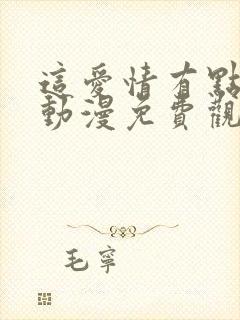 這愛情有點
動漫免費觀
毛寧